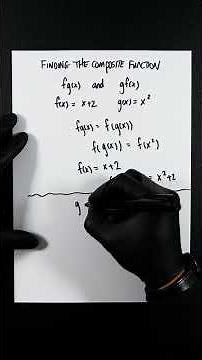 FINDING THE COMPOSITE FUNCTION
fg(x) and gf(x)
f(x) = x+2 g(x) = x²
fg(x) = f(g(x))
f(g(x)) = f(x²)
f(x) = x+2
= x²+2
g